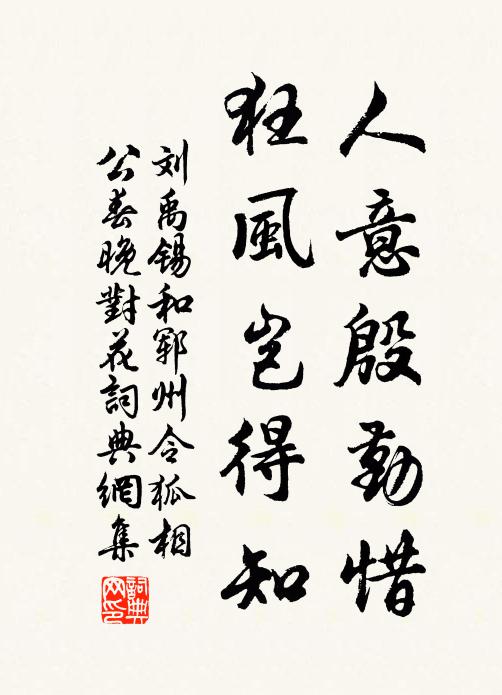 人意殷勤惜
狂風岂得知
刘禹锡和鄆州令狐相
公春晚對花詞典網集
詞典
网印